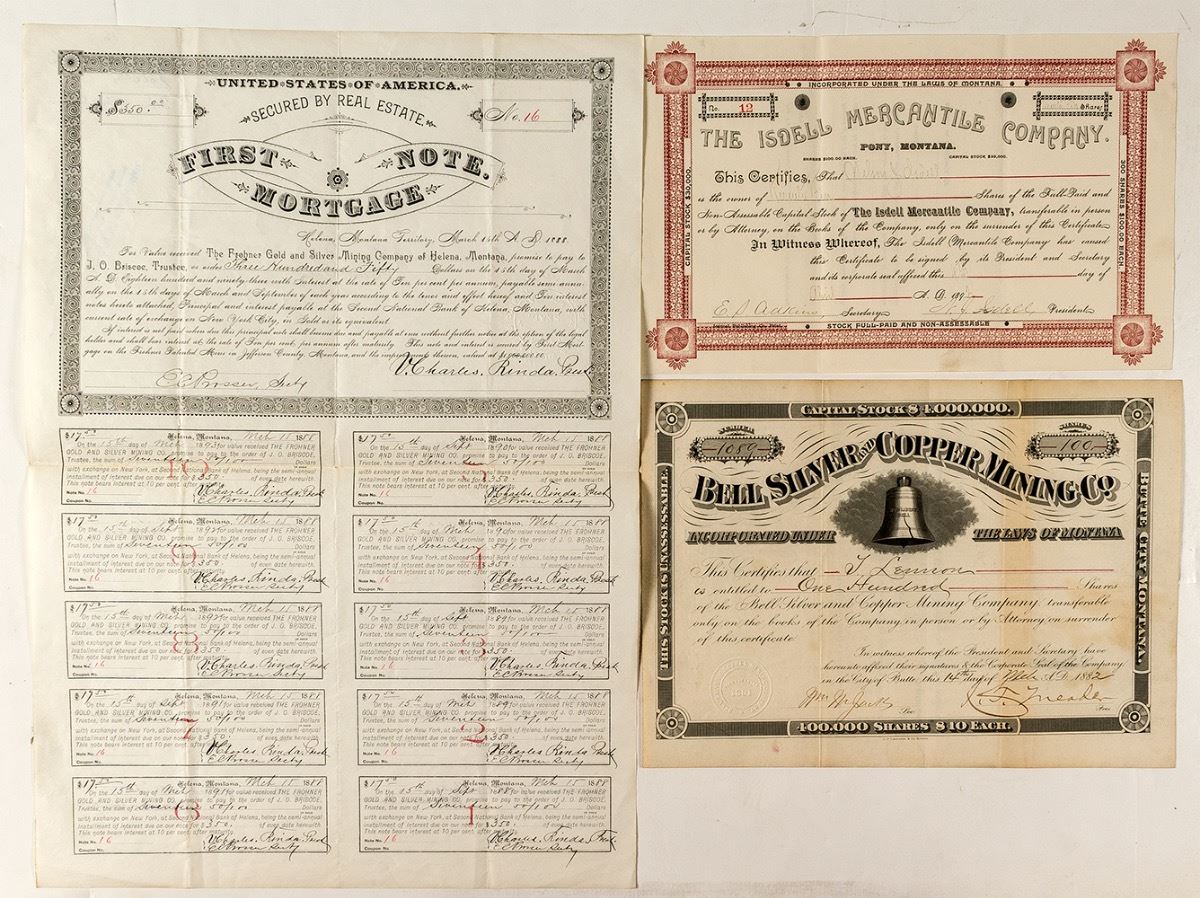 UNITED STATES OF AMERICA.
$350.00
SECURED BY REAL ESTATE.
No. 16
FIRST MORTGAGE NOTE.
Helena, Montana Territory, March 15th A. D. 1888.
For Value received The Frohner Gold and Silver Mining Company of Helena, Montana, promise to pay to
J. O. Briscoe, Trustee, or order Three Hundred and Fifty Dollars on the 15th day of March
A. D. Eighteen hundred and ninety-three with Interest at the rate of Ten per cent per annum, payable semi-annu-
ally on the 15th days of March and September of each year according to the tenor and effect hereof and Ten interest
notes hereto attached, Principal and interest payable at the Second National Bank of Helena, Montana, with
current rate of exchange on New York City in Gold or its equivalent.
If interest is not paid when due this principal note shall become due and payable at once without further notice at the option of the legal
holder and shall bear interest at the rate of Ten per cent. per annum after maturity. This note and interest is secured by First Mort-
gage on the Frohner Patented Mine in Jefferson County, Montana, and the improvements thereon, valued at $1,000,000.00.
V. Charles. Rinda, Prest.
E C Prosser, Secty
$17.50 Helena, Montana, Mch 15 1888
On the 15th day of Mch 1893 for value received THE FROHNER
GOLD AND SILVER MINING CO. promise to pay to the order of J. O. BRISCOE,
Trustee, the sum of Seventeen 50/100 Dollars
with exchange on New York, at Second National Bank of Helena, being the semi-annual
installment of interest due on our note for $350. of even date herewith.
This note bears interest at 10 per cent. after maturity.
Note No. 16 V. Charles, Rinda, Prest
Coupon No. 10 E C Prosser Secty
$17.50 Helena, Montana, Mch 15 1888
On the 15th day of Sept 1890 for value received THE FROHNER
GOLD AND SILVER MINING CO. promise to pay to the order of J. O. BRISCOE,
Trustee, the sum of Seventeen 50/100 Dollars
with exchange on New York, at Second National Bank of Helena, being the semi-annual
installment of interest due on our note for $350. of even date herewith.
This note bears interest at 10 per cent. after maturity.
Note No. 16 V. Charles, Rinda, Prest
Coupon No. 5 E C Prosser Secty
$17.50 Helena, Montana, Mch 15 1888
On the 15th day of Sept 1892 for value received THE FROHNER
GOLD AND SILVER MINING CO. promise to pay to the order of J. O. BRISCOE,
Trustee, the sum of Seventeen 50/100 Dollars
with exchange on New York, at Second National Bank of Helena, being the semi-annual
installment of interest due on our note for $350. of even date herewith.
This note bears interest at 10 per cent. after maturity.
Note No. 16 V. Charles, Rinda, Prest
Coupon No. 9 E C Prosser Secty
$17.50 Helena, Montana, Mch 15 1888
On the 15th day of Mch 1890 for value received THE FROHNER
GOLD AND SILVER MINING CO. promise to pay to the order of J. O. BRISCOE,
Trustee, the sum of Seventeen 50/100 Dollars
with exchange on New York, at Second National Bank of Helena, being the semi-annual
installment of interest due on our note for $350. of even date herewith.
This note bears interest at 10 per cent. after maturity.
Note No. 16 V. Charles, Rinda, Prest
Coupon No. 4 E C Prosser Secty
$17.50 Helena, Montana, Mch 15 1888
On the 15th day of Mch for value received THE FROHNER
GOLD AND SILVER MINING CO. promise to pay to the order of J. O. BRISCOE,
Trustee, the sum of Seventeen 50/100 Dollars
with exchange on New York, at Second National Bank of Helena, being the semi-annual
installment of interest due on our note for $350. of even date herewith.
This note bears interest at 10 per cent. after maturity.
Note No. 16 V. Charles, Rinda, Prest
Coupon No. 8 E C Prosser Secty
$17.50 Helena, Montana, Mch 15 1888
On the 15th day of Sept 1889 for value received THE FROHNER
GOLD AND SILVER MINING CO. promise to pay to the order of J. O. BRISCOE,
Trustee, the sum of Seventeen 50/100 Dollars
with exchange on New York, at Second National Bank of Helena, being the semi-annual
installment of interest due on our note for $350. of even date herewith.
This note bears interest at 10 per cent. after maturity.
Note No. 16 V. Charles, Rinda, Prest
Coupon No. 3 E C Prosser Secty
$17.50 Helena, Montana, Mch 15 1888
On the 15th day of Sept 1891 for value received THE FROHNER
GOLD AND SILVER MINING CO. promise to pay to the order of J. O. BRISCOE,
Trustee, the sum of Seventeen 50/100 Dollars
with exchange on New York, at Second National Bank of Helena, being the semi-annual
installment of interest due on our note for $350. of even date herewith.
This note bears interest at 10 per cent. after maturity.
Note No. 16 V. Charles, Rinda, Prest
Coupon No. 7 E C Prosser Secty
$17.50 Helena, Montana, Mch 15 1888
On the 15th day of Mch 1889 for value received THE FROHNER
GOLD AND SILVER MINING CO. promise to pay to the order of J. O. BRISCOE,
Trustee, the sum of Seventeen 50/100 Dollars
with exchange on New York, at Second National Bank of Helena, being the semi-annual
installment of interest due on our note for $350. of even date herewith.
This note bears interest at 10 per cent. after maturity.
Note No. 16 V. Charles, Rinda, Prest
Coupon No. 2 E C Prosser Secty
$17.50 Helena, Montana, Mch 15 1888
On the 15th day of Mch 1891 for value received THE FROHNER
GOLD AND SILVER MINING CO. promise to pay to the order of J. O. BRISCOE,
Trustee, the sum of Seventeen 50/100 Dollars
with exchange on New York, at Second National Bank of Helena, being the semi-annual
installment of interest due on our note for $350. of even date herewith.
This note bears interest at 10 per cent. after maturity.
Note No. 16 V. Charles, Rinda, Prest
Coupon No. 6 E C Prosser Secty
$17.50 Helena, Montana, Mch 15 1888
On the 15th day of Sept 1888 for value received THE FROHNER
GOLD AND SILVER MINING CO. promise to pay to the order of J. O. BRISCOE,
Trustee, the sum of Seventeen 50/100 Dollars
with exchange on New York, at Second National Bank of Helena, being the semi-annual
installment of interest due on our note for $350. of even date herewith.
This note bears interest at 10 per cent. after maturity.
Note No. 16 V. Charles, Rinda, Prest
Coupon No. 1 E C Prosser Secty
INCORPORATED UNDER THE LAWS OF MONTANA
No. 12 Shares
THE ISDELL MERCANTILE COMPANY.
PONY, MONTANA.
SHARES $100.00 EACH. CAPITAL STOCK $30,000.
This Certifies, That
is the owner of Shares of the Full-Paid and
Non-Assessable Capital Stock of The Isdell Mercantile Company, transferable in person
or by Attorney, on the Books of the Company, only on the surrender of this Certificate.
In Witness Whereof, The Isdell Mercantile Company has caused
this Certificate to be signed by its President and Secretary
and its corporate seal affixed this day of
A. D. 189
E. S. Adkins Secretary Isdell President
STOCK FULL-PAID AND NON-ASSESSABLE
CAPITAL STOCK $30,000.
300 SHARES $100.00 EACH
CAPITAL STOCK $4,000,000.
NUMBER 1089 SHARES 100
BELL SILVER AND COPPER MINING Co.
INCORPORATED UNDER THE LAWS OF MONTANA
This Certifies that T Lennon
is entitled to One Hundred Shares
of the Bell Silver and Copper Mining Company transferable
only on the books of the Company in person or by Attorney on surrender
of this certificate
In witness whereof the President and Secretary have
hereunto affixed their signatures & the Corporate Seal of the Company
in the City of Butte, this 14th day of Mch A.D. 1882
Sec. Pres.
400.000 SHARES $10 EACH.
THIS STOCK IS UNASSESSABLE.
BUTTE CITY MONTANA.